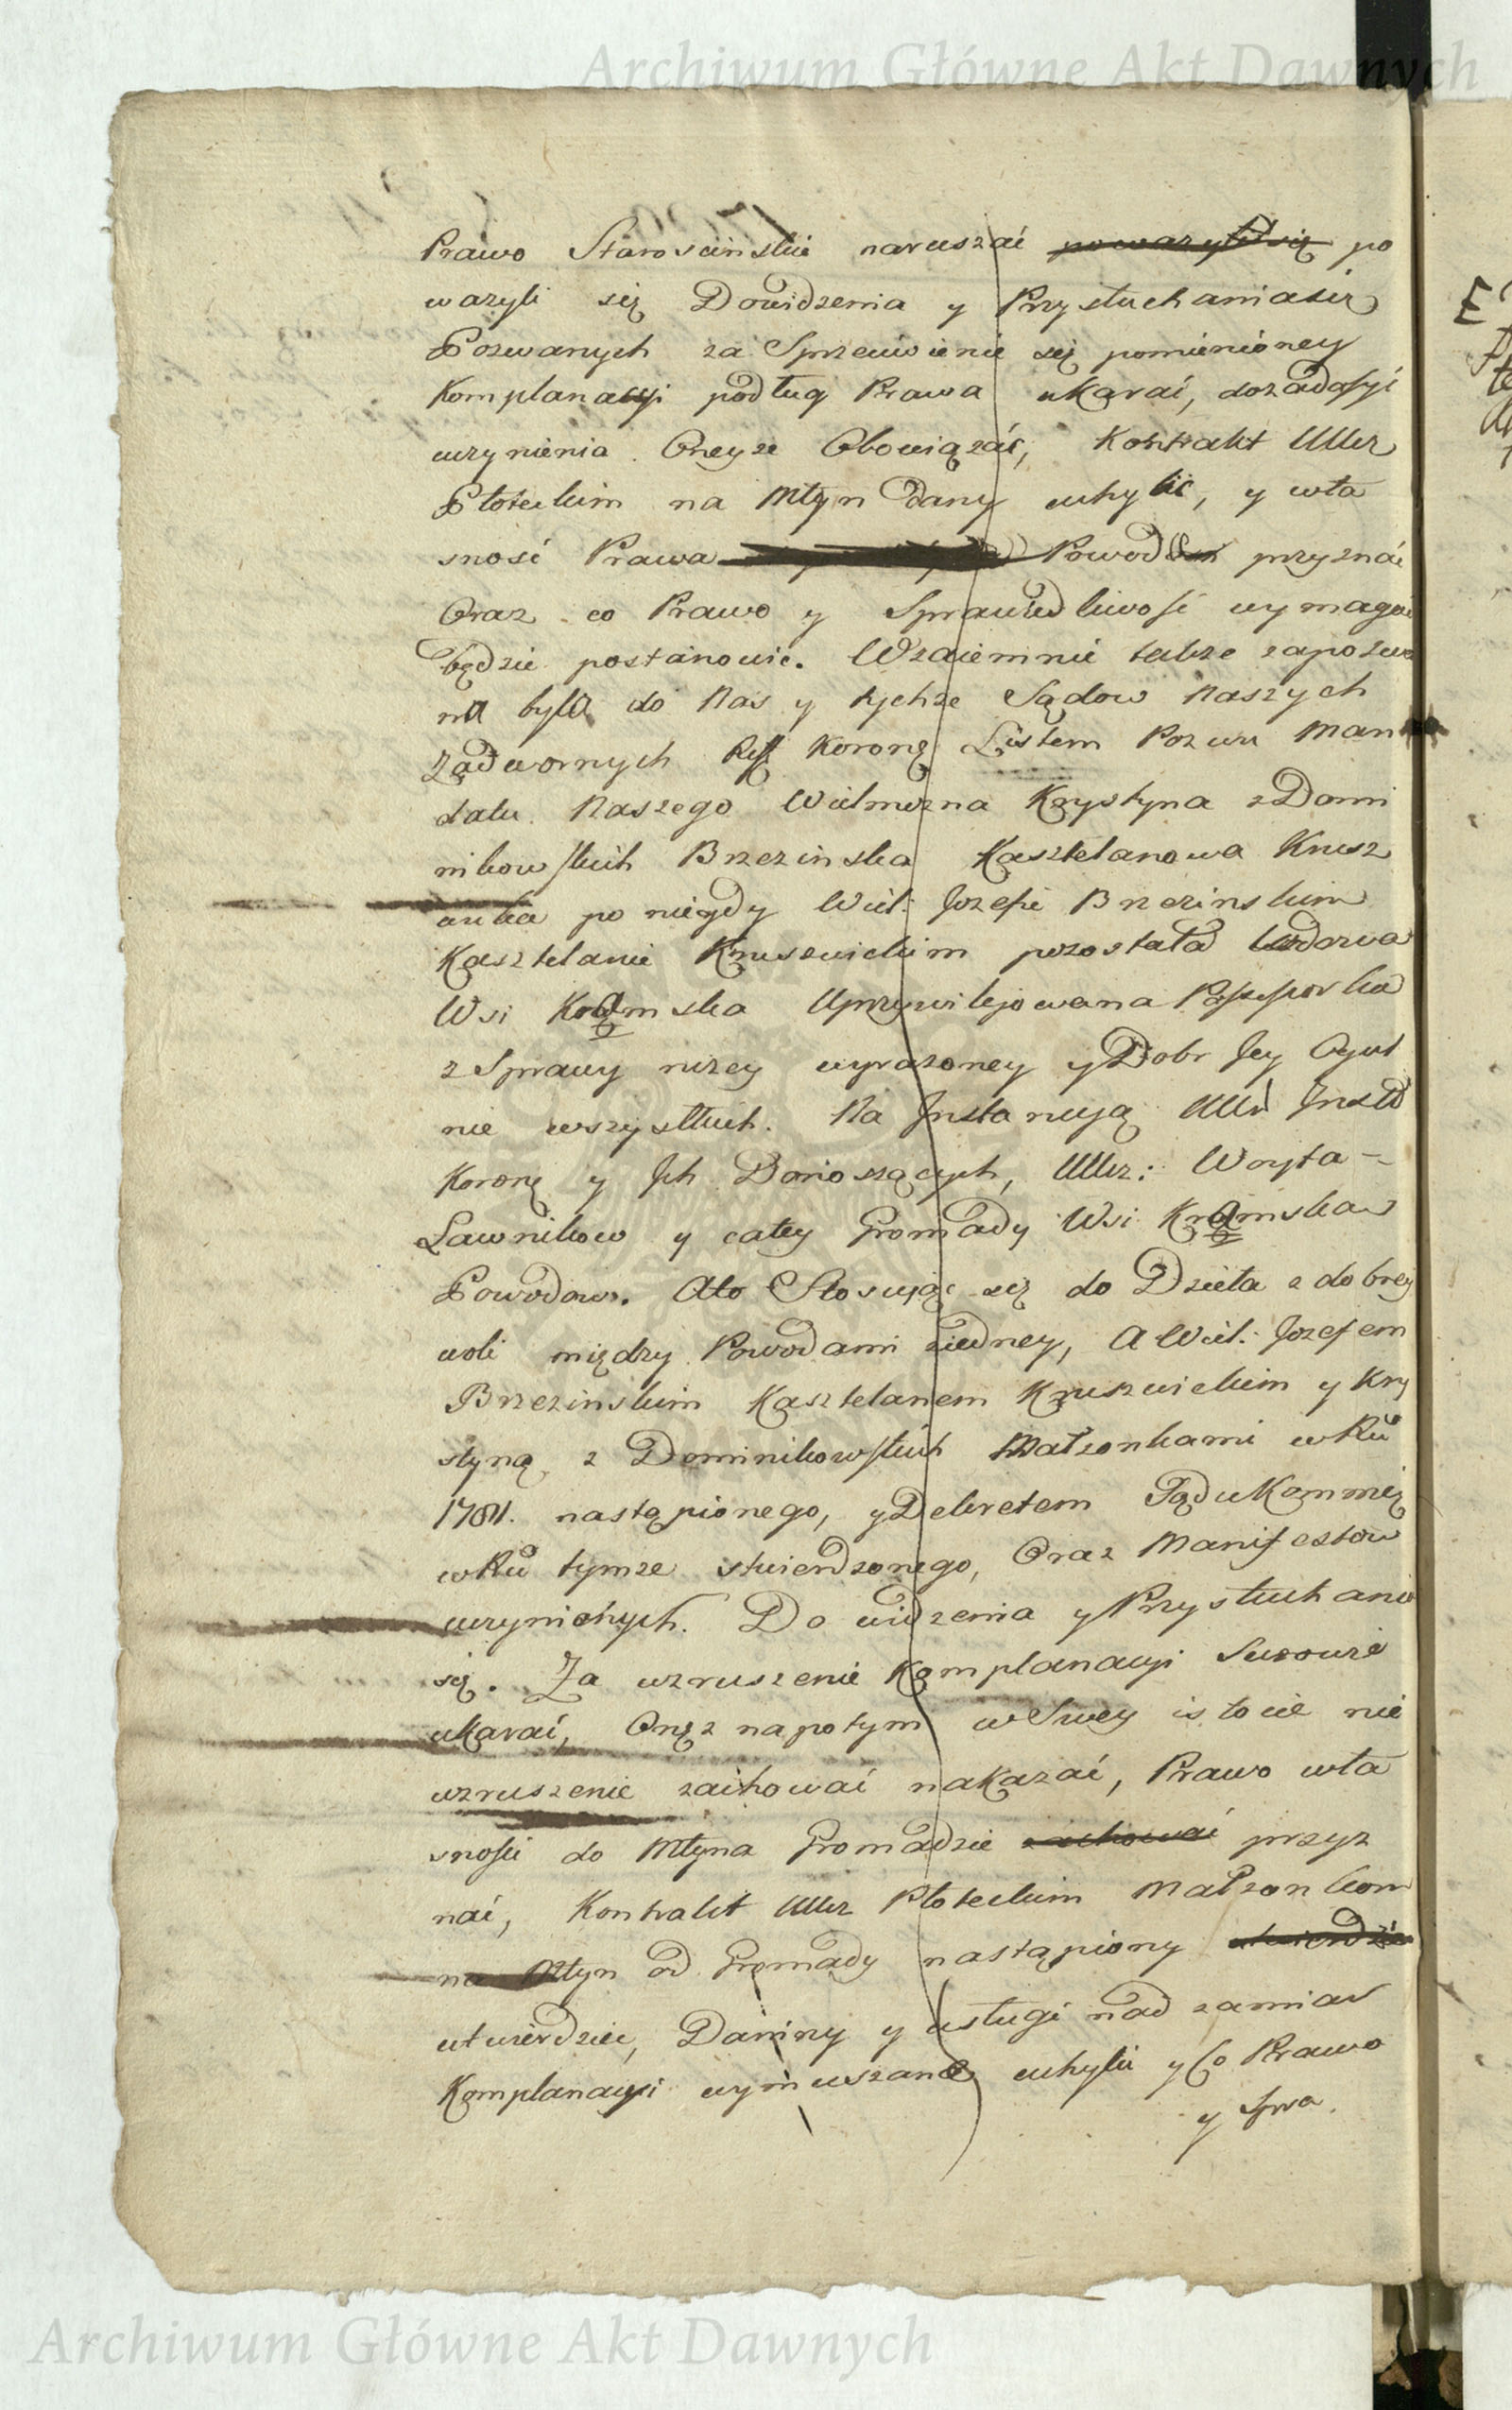 Archiwum Główne Akt Dawnych
Prawo Staroscinskie naruszać powazyli się po
wazyli się Dowidzenia y Przysłuchaniasię
Pozwanych za Sprzeciwienie się pomienioney
Komplanacyi podług Prawa ukarać, dozadosyć
uczynienia Oneyze Obowiązać, Kontrakt UUrz
Płoteckim na Młyn dany uchylić, y wła
sność Prawa Powodom przyznać
Oraz co Prawo y Sprawiedliwość wymagać
będzie postanowić. Wzaiemnie takze zapozwa
na była do Nas y tychze Sądow Naszych
Zadwornych Reff Koronę Listem Pozwu Man
datu Naszego Wielmozna Krystyna z Domi
nikowskich Brzezinska Kasztelanowa Krusz
wicka po niegdy Wiel: Jozefie Brzezinskim
Kasztelanie Kruszwickim pozostała Wdowa
Wsi Kramska Uprzywilejowana Possessorka
z Sprawy nizey wyrazoney y Dobr Jey Ogul
nie wszystkich. Na Instancyą UUr Instt
Koronę y Jch Donoszących, UUrz: Woyta
Ławnikow y całey Gromady Wsi Kramska
Powodow. Ato Stosując się do Dzieła z dobrey
woli między Powodami ziedney, A Wiel: Jozefem
Brzezinskim Kasztelanem Kruszwickim y Kry
styną z Dominikowskich Małzonkami w Ru
1781. nastąpionego, y Dekretem Sądu Kommię
w Ru tymze stwierdzonego, Oraz Manifestow
uczynionych. Do widzenia y Przysłuchania
się. Za wzruszenie Komplanacyi Surowie
ukarać, Onęz napotym w Swey istocie nie
wzruszenie zachować nakazać, Prawo wła
snosci do Młyna Gromadzie zachować przyz
nać, Kontrakt UUrz Płoteckim Małzonkom
na Młyn od Gromady nastąpiony utwierdzić
utwierdzić, Daniny y usługi nad zamiar
Komplanacyi wymuszane uchylić y Co Prawo
y Spra.
Archiwum Główne Akt Dawnych